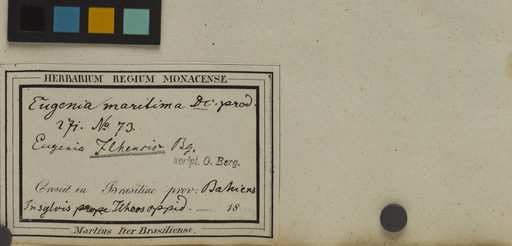 HERBARIUM REGIUM MONACENSE
Eugenia maritima DC. prod.
271. No 73.
Eugenia Ilhensis Bg.
script. O. Berg.
Crescit in Brasiliae prov: Bahiens
In sylvis prope Ilheos oppid. 18
Martius Iter Brasiliense.